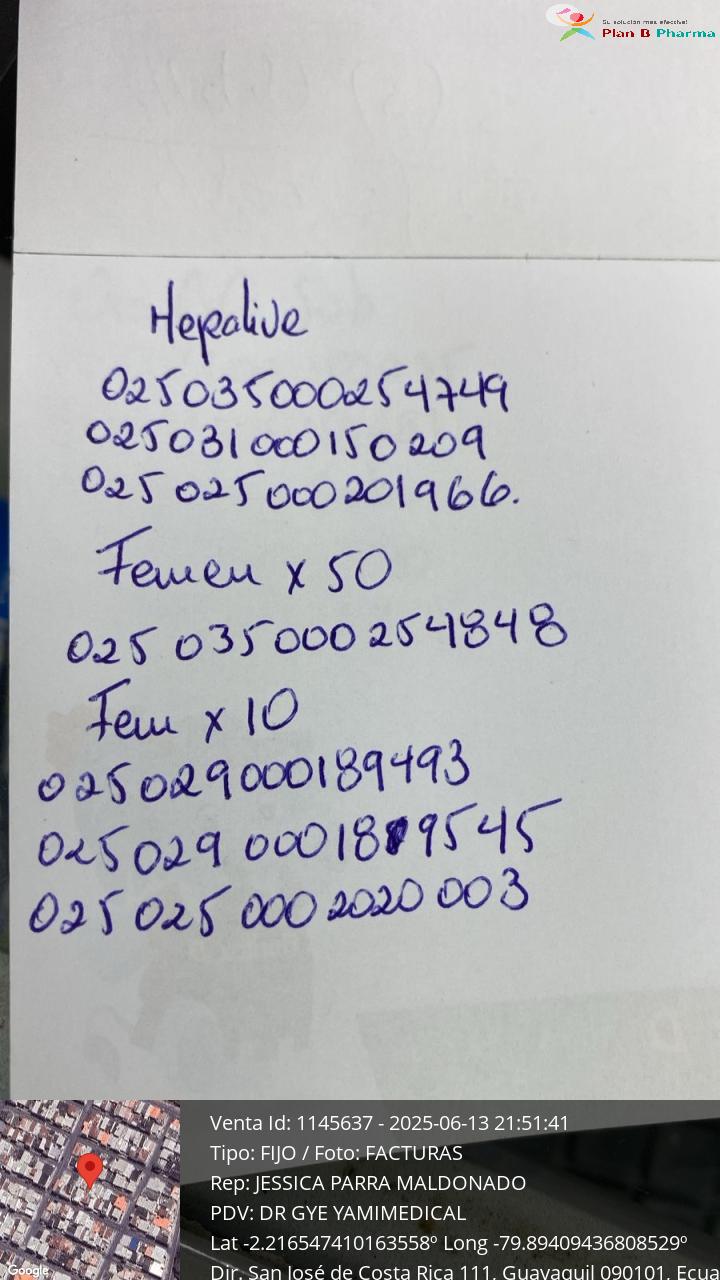 Su solución más efectiva!
Plan B Pharma
Hepalive
025035000254749
025031000150209
025025000201966.
Femen x 50
025035000254848
Fem x 10
025029000189493
025029 000189545
025025 0002020003
Venta Id: 1145637 - 2025-06-13 21:51:41
Tipo: FIJO / Foto: FACTURAS
Rep: JESSICA PARRA MALDONADO
PDV: DR GYE YAMIMEDICAL
Lat -2.216547410163558º Long -79.89409436808529º
Dir. San José de Costa Rica 111, Guayaquil 090101, Ecua
Google